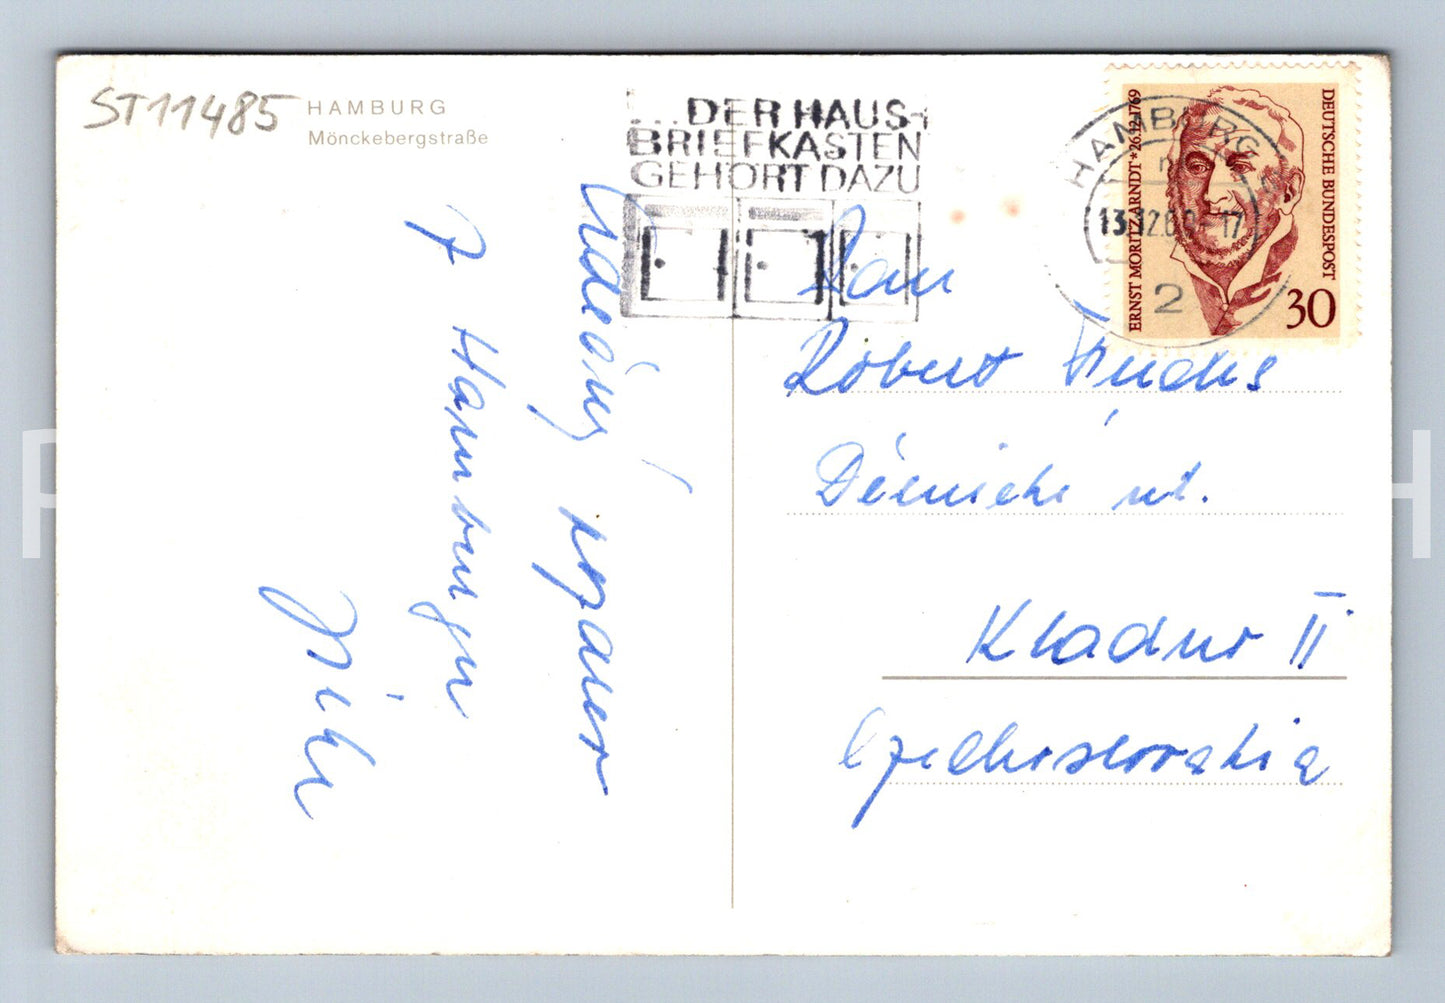 ST11485
HAMBURG
Mönckebergstraße
...DER HAUS-
BRIEFKASTEN
GEHÖRT DAZU
HAMBURG
13.12.69-17
2
ERNST MORITZ ARNDT * 26.12.1769
DEUTSCHE BUNDESPOST
30
Pan
Robert Fuchs
Dělnická ul.
Kladno II
Czechoslovakia
Srdečný pozdrav
z Hamburgu